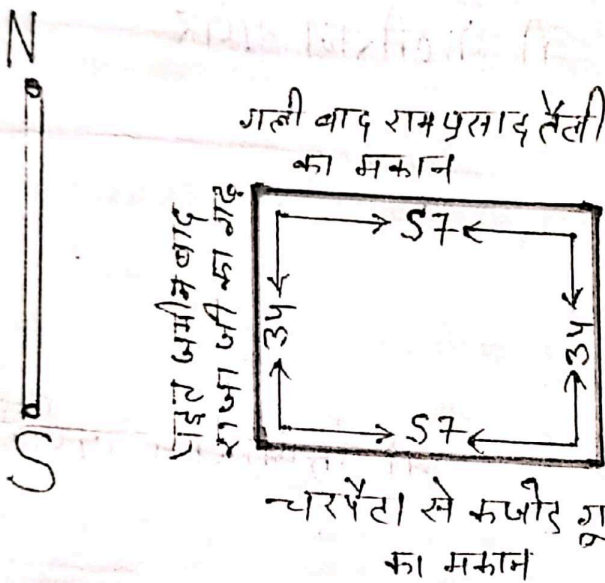 N
गली बाद रामप्रसाद तैली
का मकान
पड़त जमीन बाद
राजा जी का गढ़
57
34
34
57
S
चरपैटा से कजोड़ गू
का मकान